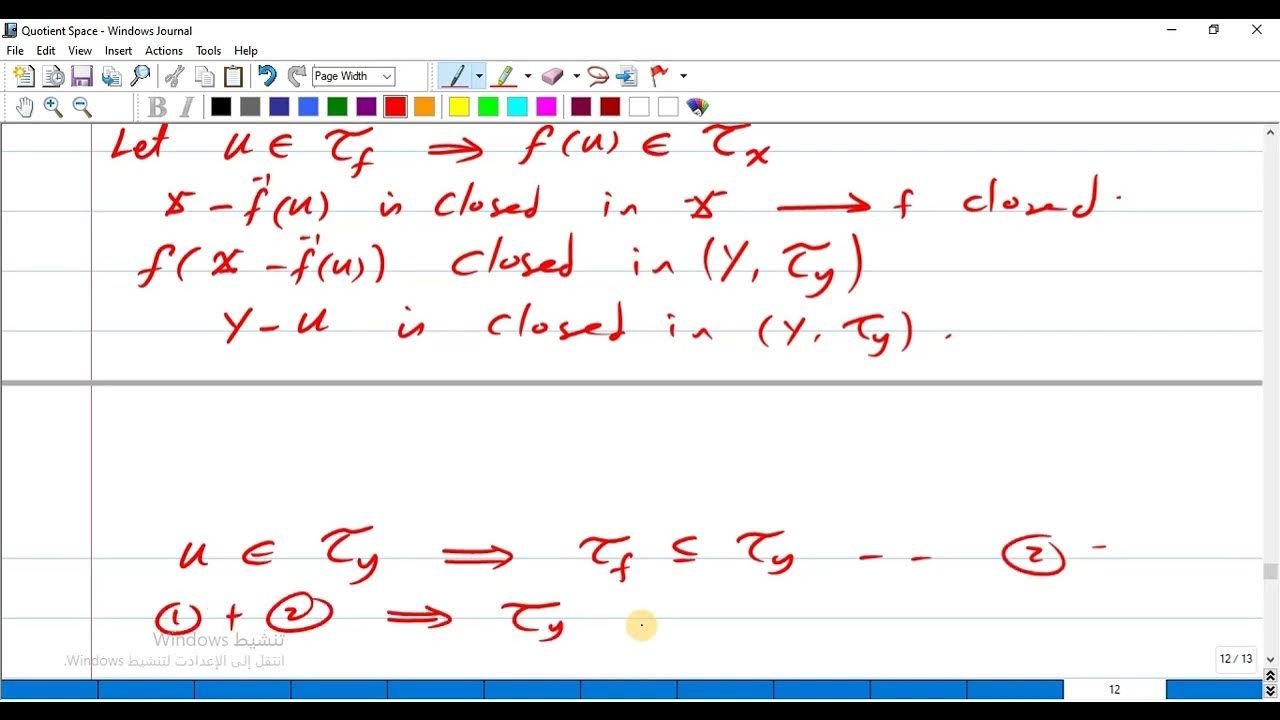 Quotient Space - Windows Journal
File Edit View Insert Actions Tools Help
Page Width
B I
Let u ∈ τ_f ⟹ f(u) ∈ τ_x
X - f⁻¹(u) is closed in X ⟶ f closed.
f(X - f⁻¹(u)) closed in (Y, τ_y)
Y - u is closed in (Y, τ_y).
u ∈ τ_y ⟹ τ_f ⊆ τ_y - - ② -
① + ② ⟹ τ_y
تنشيط Windows
انتقل إلى الإعدادت لتنشيط Windows.
12 / 13
12